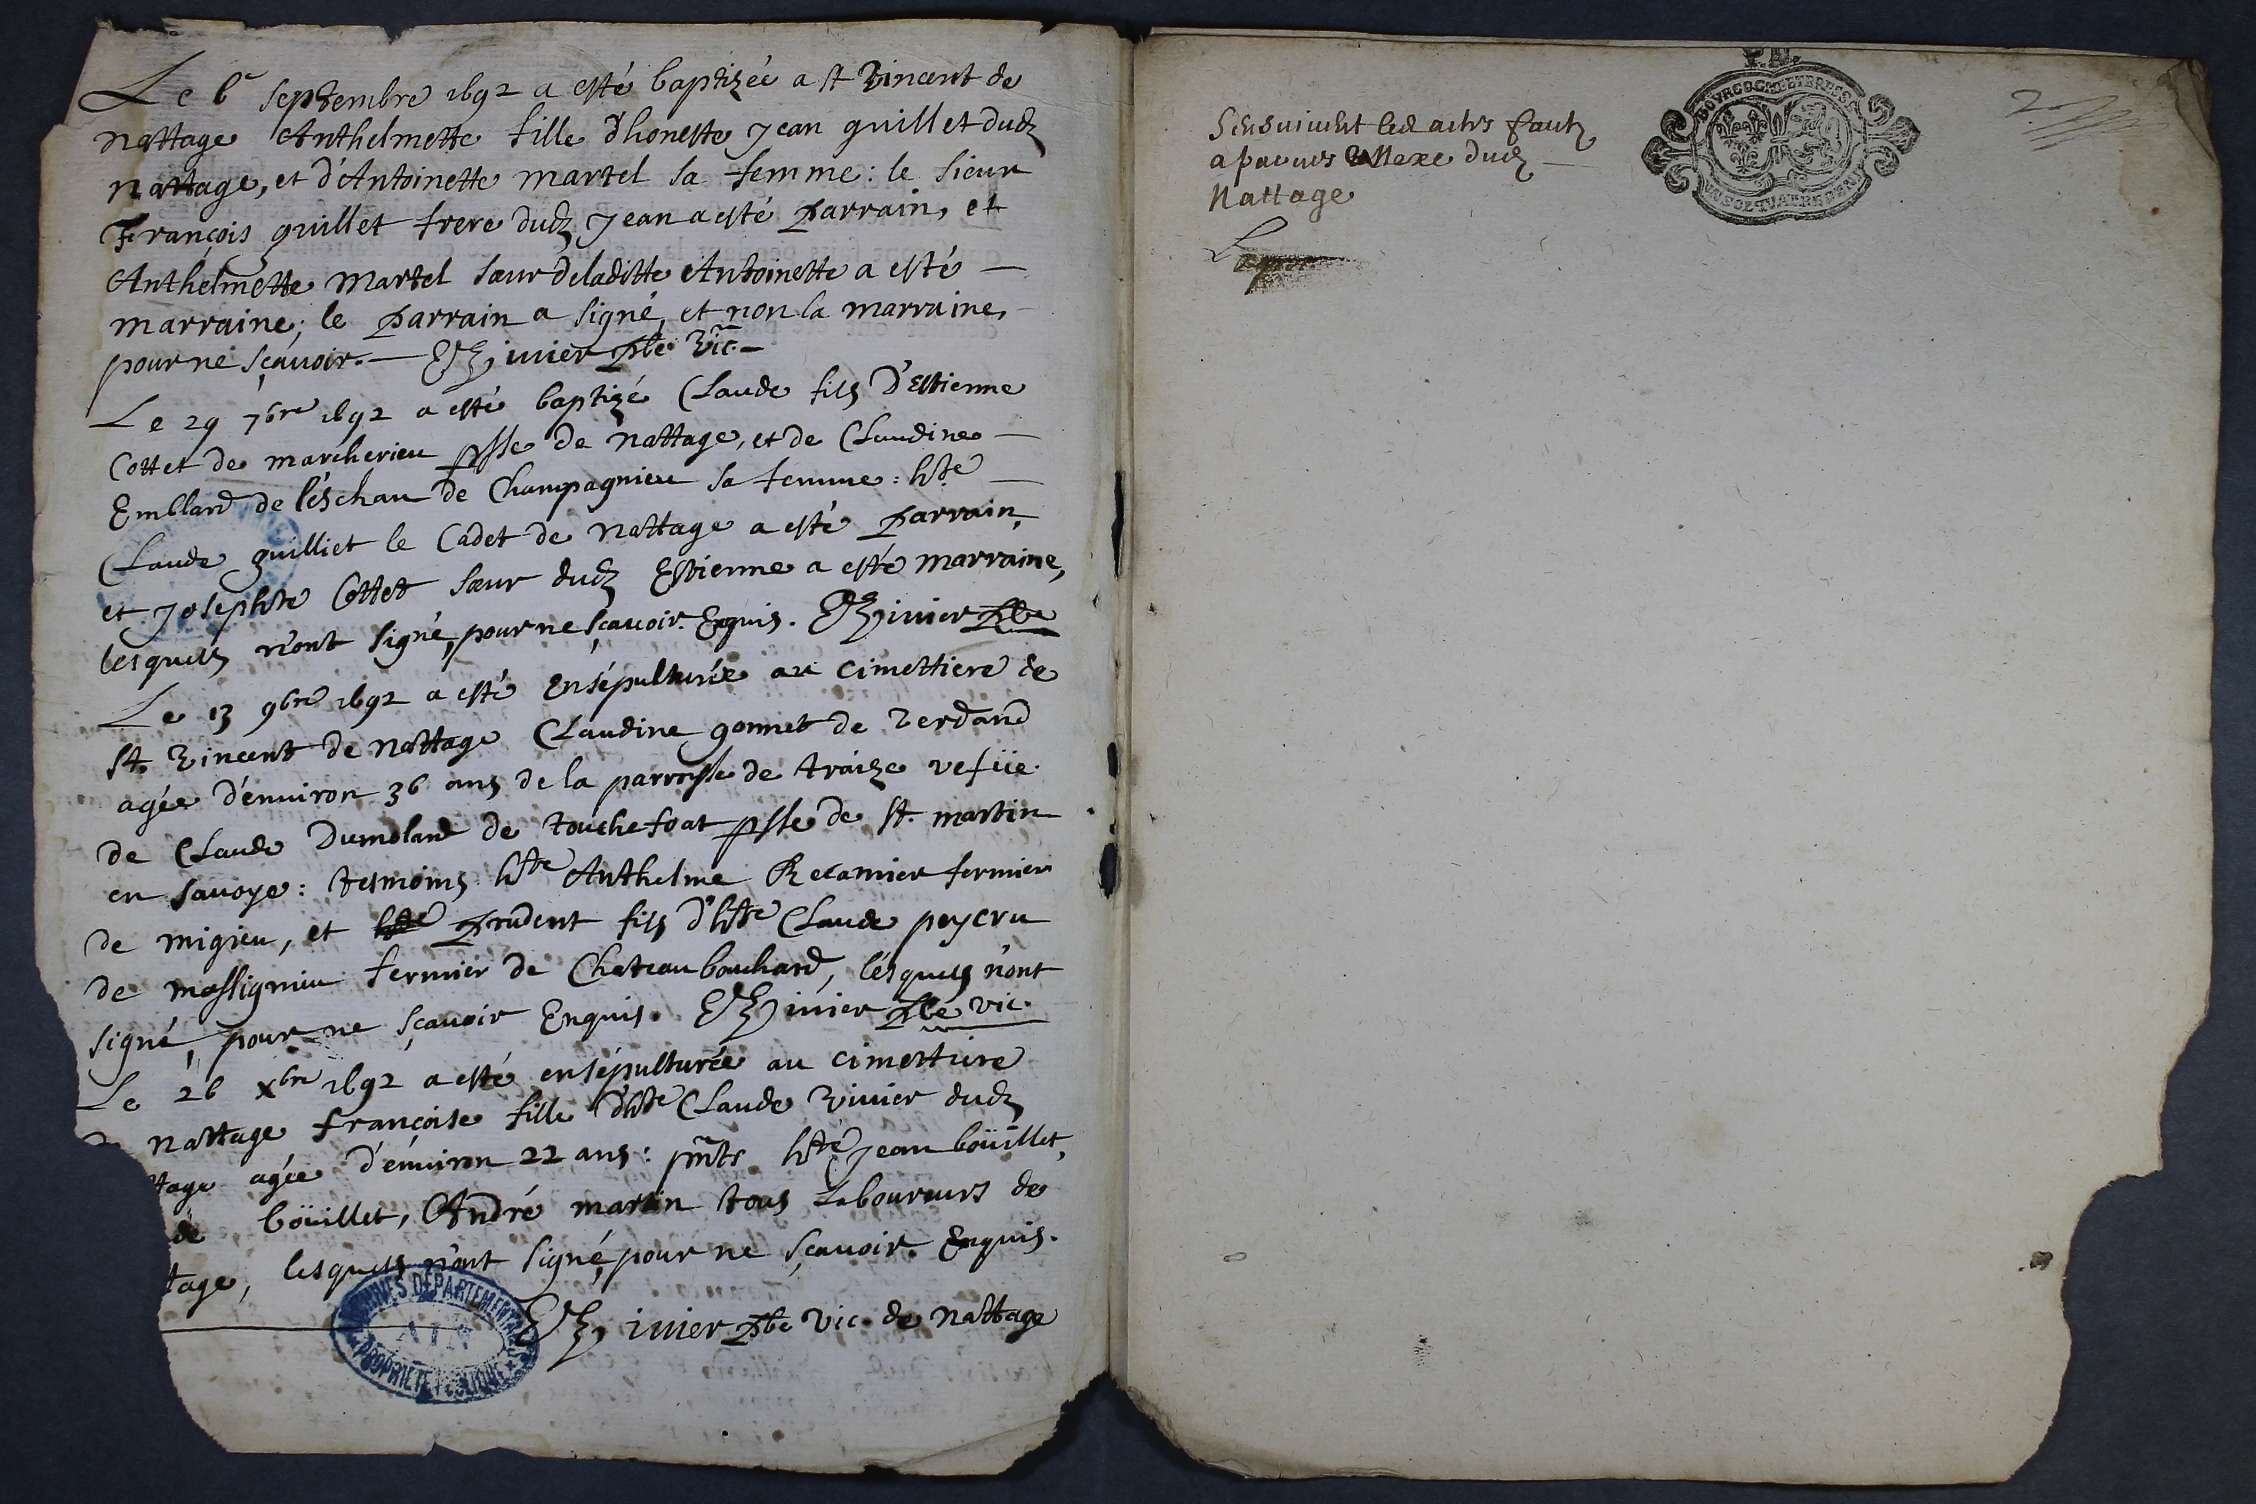 Le 6e septembre 1692 a esté baptizée a st Vincent de
nattage Anthelmette fille d'honeste Jean quillet dud
nattage, et d'Antoinette martel sa femme : le sieur
François quillet frere dud Jean a esté parrain, et
Anthelmette Martel sœur deladitte Antoinette a esté —
marraine; le parrain a signé, et non la marraine,
pour ne sçavoir. — Vivier pbr Vic. —
Le 29 7bre 1692 a esté baptizé Claude fils d'Estienne
Cottet de marcherieu psse de nattage, et de Claudine —
Emblard de l'eschau de Champagnieu sa femme : hste —
Claude guilliet le Cadet de nattage a esté parrain,
et Josephte Cottet sœur dud Estienne a esté marraine,
lesquels n'ont signé, pour ne sçavoir. Enquis. Vivier pbr
Le 13 9bre 1692 a esté ensépulturée au cimettiere de
st. Vincent de nattage Claudine gonnet de verdand
agée d'enuiron 36 ans de la parroisse de traize vefüe
de Claude Dumoland de touchefoat psse de st. martin
en sauoye : tesmoins hste Anthelme Recamier fermier
de migieu, et prudent fils d'hste Claude peycru
de massignieu fermier de Chateau bouchard, lesquels n'ont
signé, pour ne sçauoir Enquis. Vivier pbr vic.
Le 26 xbre 1692 a esté ensépulturée au cimettiere
nattage françoise fille d'hste Claude Vivier dud
ttage agée d'enuiron 22 ans : pnts hste Jean boüillet,
de boüillet, André martin tous Laboureurs de
tage, lesquels n'ont signé, pour ne sçauoir. Enquis.
Vivier pbr vic. de nattage
ARCHIVES DÉPARTEMENTALES
AIN
PROPRIÉTÉ PUBLIQUE
Sensuiuent les actes faits
annexe dud —
Nattage
BOVRGOGNE ET BRESSE
VN SOL QVATRE DENIERS